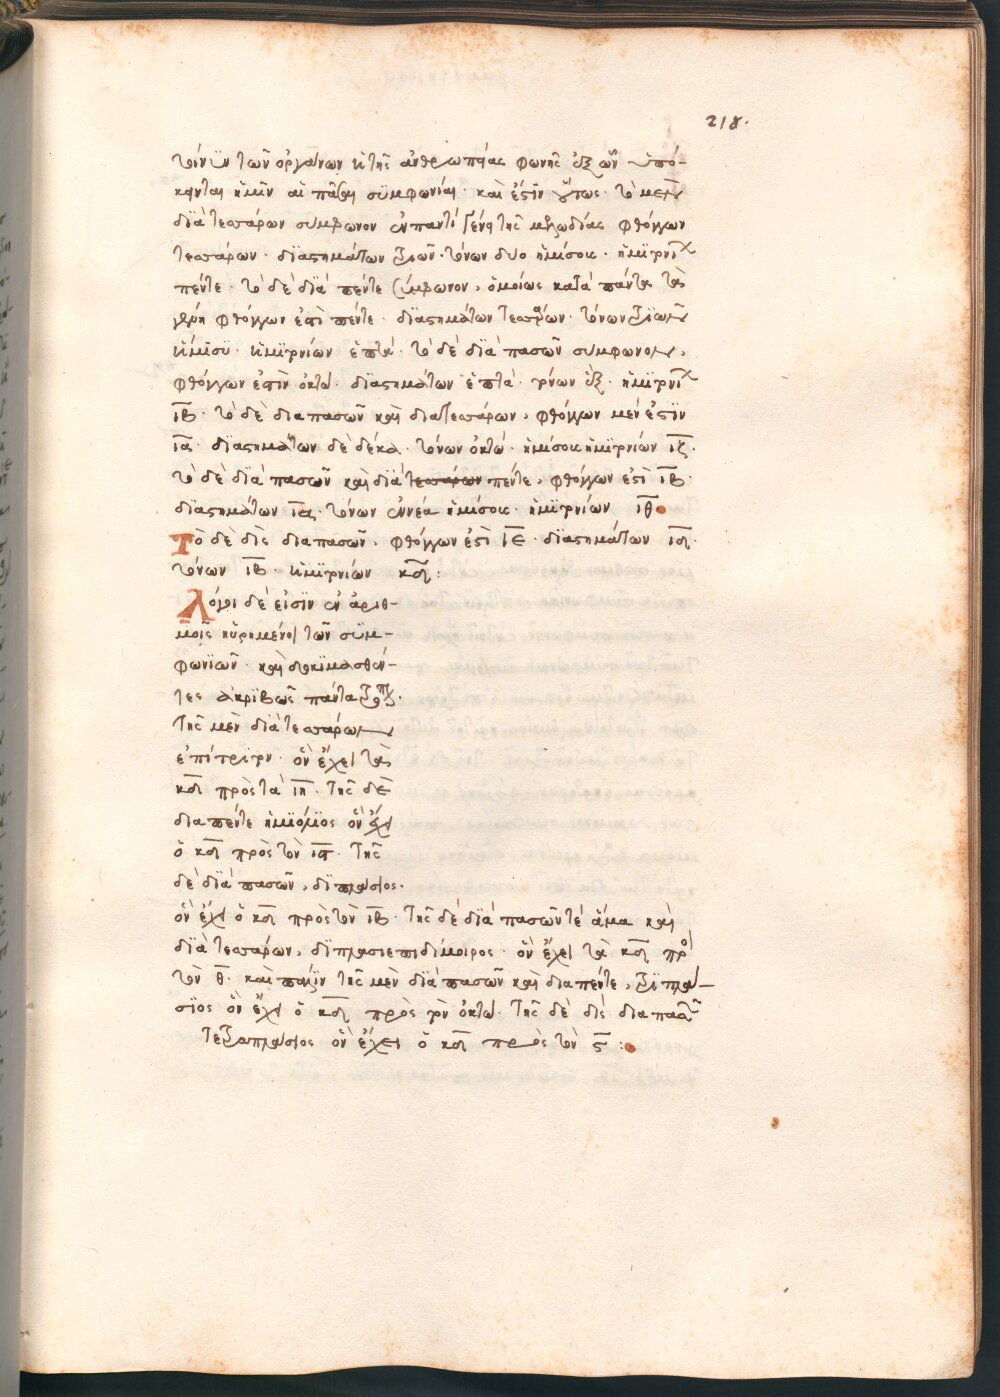 218.
τῶν τῶν ὀργάνων κ τῆς ἀνθρωπείας φωνῆς ἐξ ὧν ὑπό-
κεινται ἡμῖν αἱ πᾶσαι συμφωνίαι· καὶ ἐστὶν οὕτως· τὸ μὲν
διὰ τεσσάρων σύμφωνον ἐν παντὶ γένει τῆς μελωδίας φθόγγων
τεσσάρων· διαστημάτων τριῶν· τόνων δύο ἡμίσους· ἡμιτονί
πέντε· τὸ δὲ διὰ πέντε σύμφωνον, ὁμοίως κατὰ πάντα τὰ
γένη φθόγγων ἐστὶ πέντε· διαστημάτων τεσσάρων· τόνων τριῶν
κ ἡμίσυ· ἡμιτονίων ἑπτά· τὸ δὲ διὰ πασῶν σύμφωνον,
φθόγγων ἐστὶν ὀκτώ· διαστημάτων ἑπτά· τόνων ἕξ· ἡμιτονί
ιβ· τὸ δὲ διαπασῶν καὶ διατεσσάρων, φθόγγων μέν ἐστιν
ια· διαστημάτων δὲ δέκα· τόνων ὀκτώ· ἡμίσους ἡμιτονίων ιζ·
τὸ δὲ διὰ πασῶν καὶ διὰ τεσσάρων πέντε, φθόγγων ἐστὶ ιβ·
διαστημάτων ια· τόνων ἐννέα ἡμίσους· ἡμιτονίων ιθ
Τὸ δὲ δὶς διαπασῶν, φθόγγων ἐστὶ ιε· διαστημάτων ιδ·
τόνων ιβ· ἡμιτονίων κδ:
Λόγοι δέ εἰσιν ἐν ἀριθ-
μοῖς εὑρημένοι τῶν συμ-
φωνιῶν· καὶ δοκιμασθέν-
τες ἀκριβῶς πάντα
τῆς μὲν διὰ τεσσάρων
ἐπίτριτον· ὃν ἔχει τὰ
κδ πρὸς τὰ ιη· τῆς δὲ
διαπέντε ἡμιόλιος ὃν ἔχει
ὁ κδ πρὸς τὸν ις· τῆς
δὲ διὰ πασῶν, διπλάσιος·
ὃν ἔχει ὁ κδ πρὸς τὸν ιβ· τῆς δὲ διὰ πασῶν τε ἅμα καὶ
διὰ τεσσάρων, διπλασιεπιδίμοιρος· ὃν ἔχει τὰ κδ πρὸ
τὸν θ· καὶ πάλιν τῆς μὲν διὰ πασῶν καὶ διαπέντε, τριπλά-
σιος ὃν ἔχει ὁ κδ πρὸς τὸν ὀκτώ· τῆς δὲ δὶς διαπασῶν
τετραπλάσιος ὃν ἔχει ὁ κδ πρὸς τὸν ς: